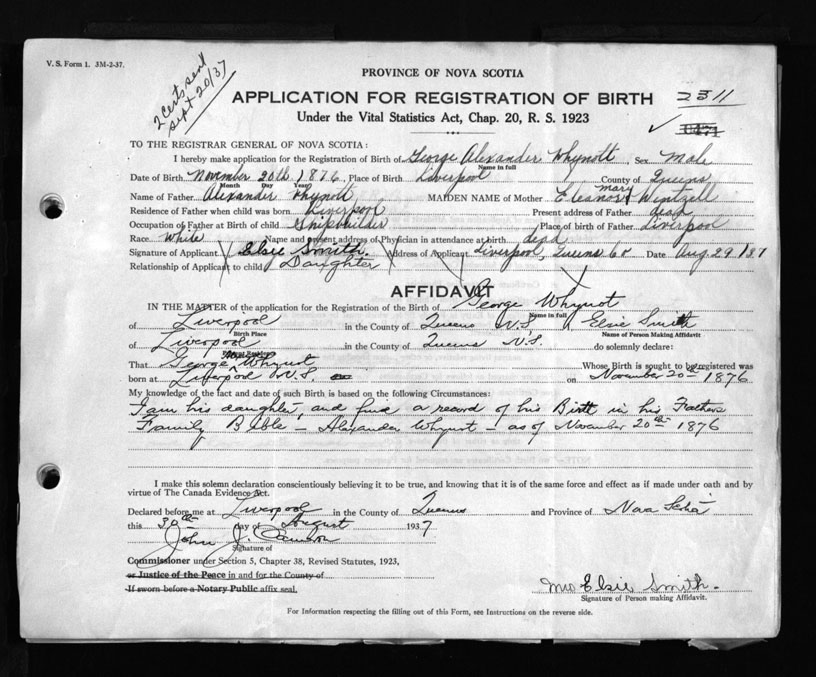 V. S. Form 1. 3M-2-37.
2 Certs sent
Sept 20/37
PROVINCE OF NOVA SCOTIA
APPLICATION FOR REGISTRATION OF BIRTH
2311
Under the Vital Statistics Act, Chap. 20, R. S. 1923
TO THE REGISTRAR GENERAL OF NOVA SCOTIA:
I hereby make application for the Registration of Birth of George Alexander Whynott, Sex Male
Name in full
Date of Birth November 20th 1876, Place of Birth Liverpool County of Queens
Month Day Year
Name of Father Alexander Whynott MAIDEN NAME of Mother Eleanor Mary Wentzell
Residence of Father when child was born Liverpool Present address of Father dead
Occupation of Father at Birth of child Shipbuilder Place of birth of Father Liverpool
Race White Name and present address of Physician in attendance at birth dead
Signature of Applicant Elsie Smith. Address of Applicant Liverpool, Queens Co Date Aug. 29/37
Relationship of Applicant to child Daughter
AFFIDAVIT
IN THE MATTER of the application for the Registration of the Birth of George Whynot
Name in full
of Liverpool in the County of Queens N.S, I Elsie Smith
Birth Place Name of Person Making Affidavit
of Liverpool in the County of Queens N.S. do solemnly declare:
That George Whynot Whose Birth is sought to be registered was
born at Liverpool N.S. on November 20th 1876
My knowledge of the fact and date of such Birth is based on the following Circumstances:
I am his daughter, and find a record of his Birth in his Fathers
Family Bible - Alexander Whynot - as of November 20th 1876
I make this solemn declaration conscientiously believing it to be true, and knowing that it is of the same force and effect as if made under oath and by
virtue of The Canada Evidence Act.
Declared before me at Liverpool in the County of Queens and Province of Nova Scotia
this 30th day of August 1937
John J. Cameron
Signature of
Commissioner under Section 5, Chapter 38, Revised Statutes, 1923,
or Justice of the Peace in and for the County of
If sworn before a Notary Public affix seal.
Mrs Elsie Smith.
Signature of Person making Affidavit.
For Information respecting the filling out of this Form, see Instructions on the reverse side.